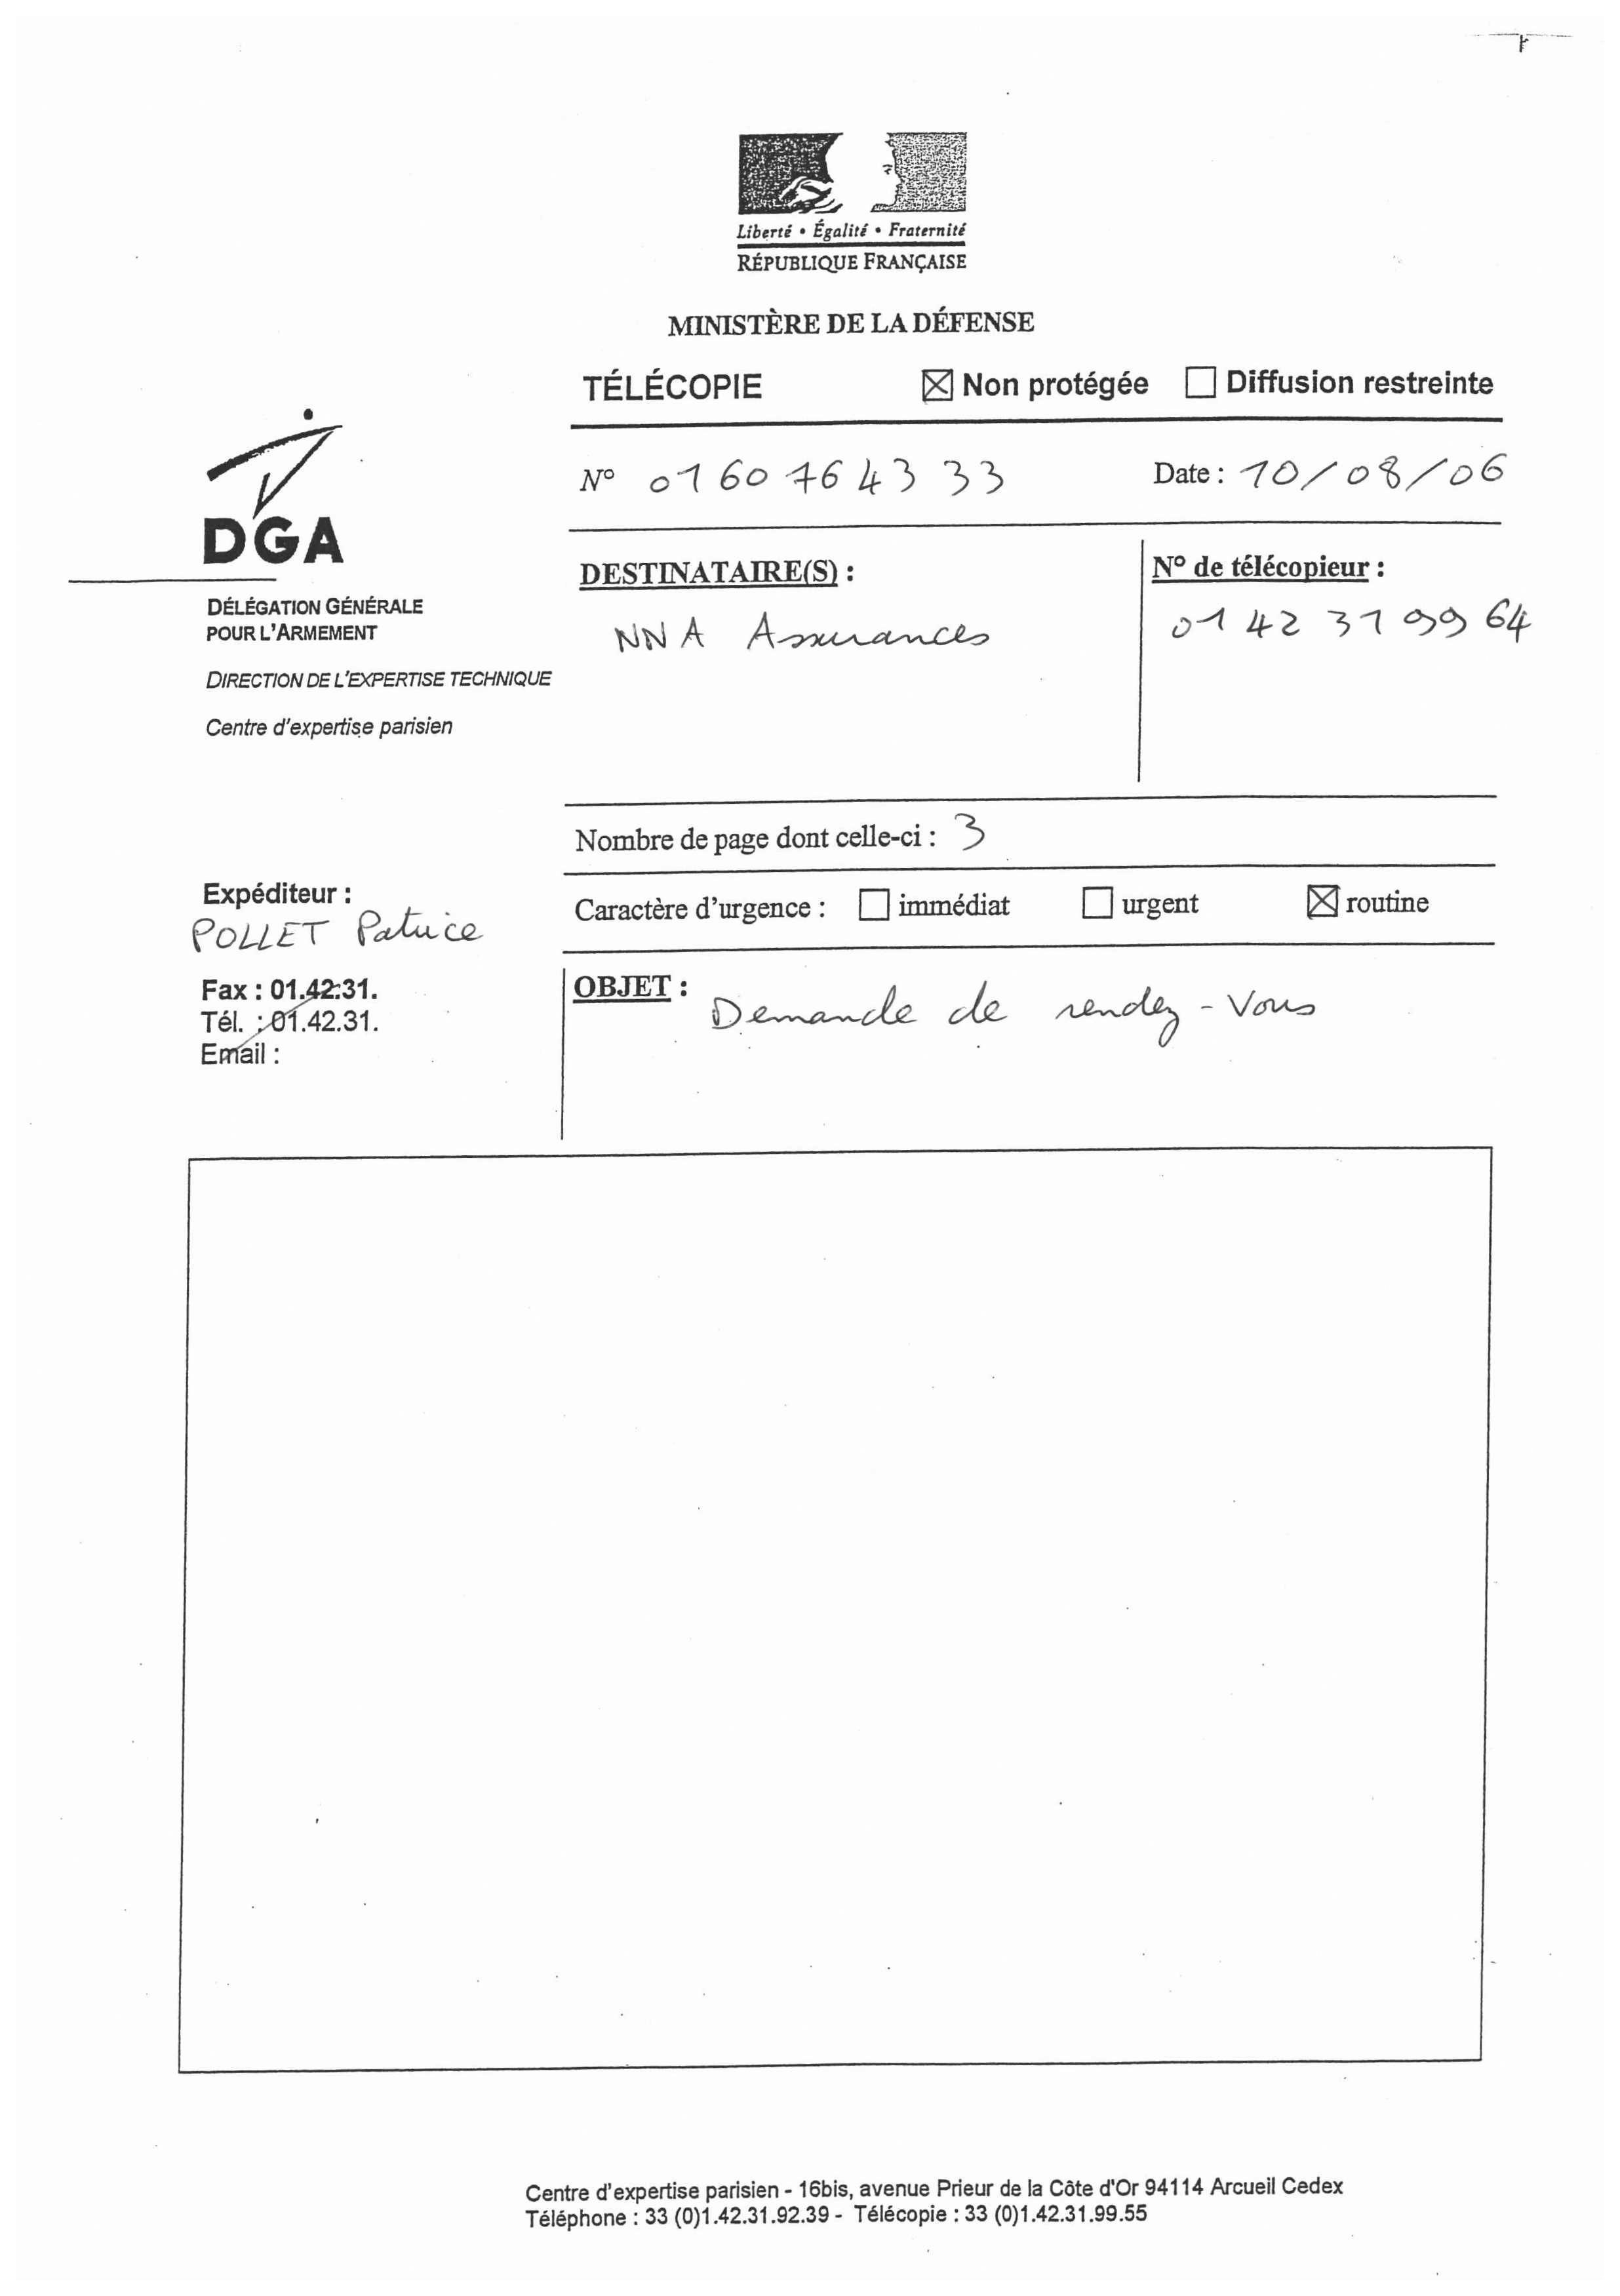 Liberté • Égalité • Fraternité
RÉPUBLIQUE FRANÇAISE
MINISTÈRE DE LA DÉFENSE
TÉLÉCOPIE ☒ Non protégée ☐ Diffusion restreinte
N° 01 60 76 43 33 Date : 10/08/06
DGA
DÉLÉGATION GÉNÉRALE
POUR L'ARMEMENT
DIRECTION DE L'EXPERTISE TECHNIQUE
Centre d'expertise parisien
DESTINATAIRE(S) :
NNA Assurances
N° de télécopieur :
01 42 31 99 64
Nombre de page dont celle-ci : 3
Caractère d'urgence : ☐ immédiat ☐ urgent ☒ routine
Expéditeur :
POLLET Patrice
Fax : 01.42.31.
Tél. : 01.42.31.
Email :
OBJET : Demande de rendez-vous
Centre d'expertise parisien - 16bis, avenue Prieur de la Côte d'Or 94114 Arcueil Cedex
Téléphone : 33 (0)1.42.31.92.39 - Télécopie : 33 (0)1.42.31.99.55